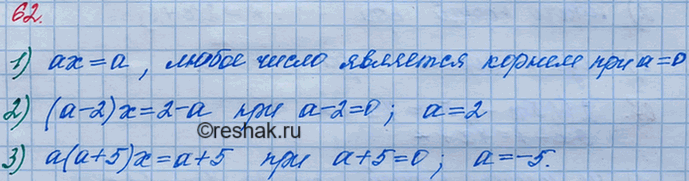 62.
1) ax = a, любое число является корнем при a=0
2) (a-2)x=2-a при a-2=0; a=2
©reshak.ru
3) a(a+5)x=a+5 при a+5=0; a=-5.